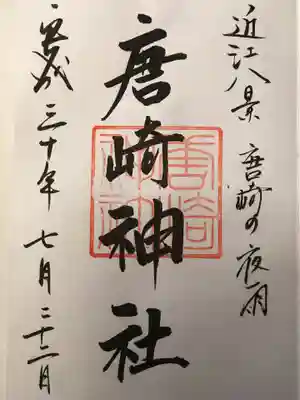 近江八景 唐崎の夜雨
唐崎神社
唐崎
神社
平成三十年 七月二十二日